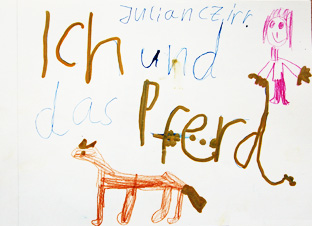 Julian Czirr
Ich und
das Pferd